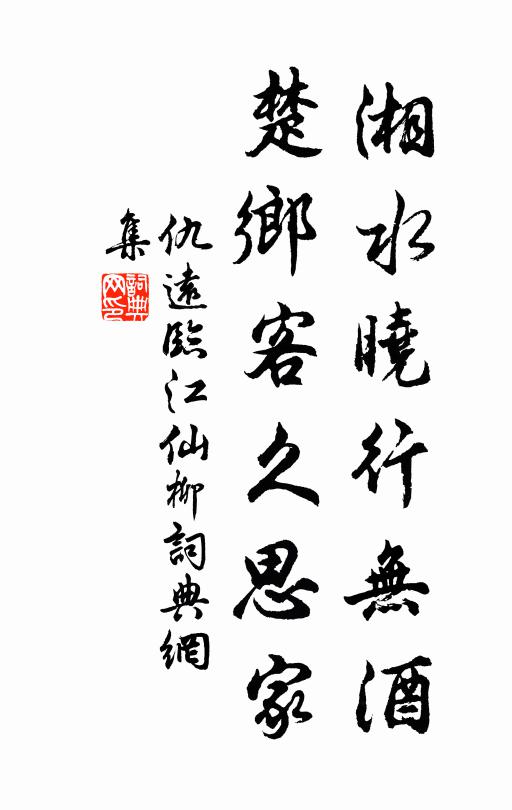 湘水曉行無酒
楚鄉客久思家
仇遠臨江仙柳詞典網
集
詞典
网印